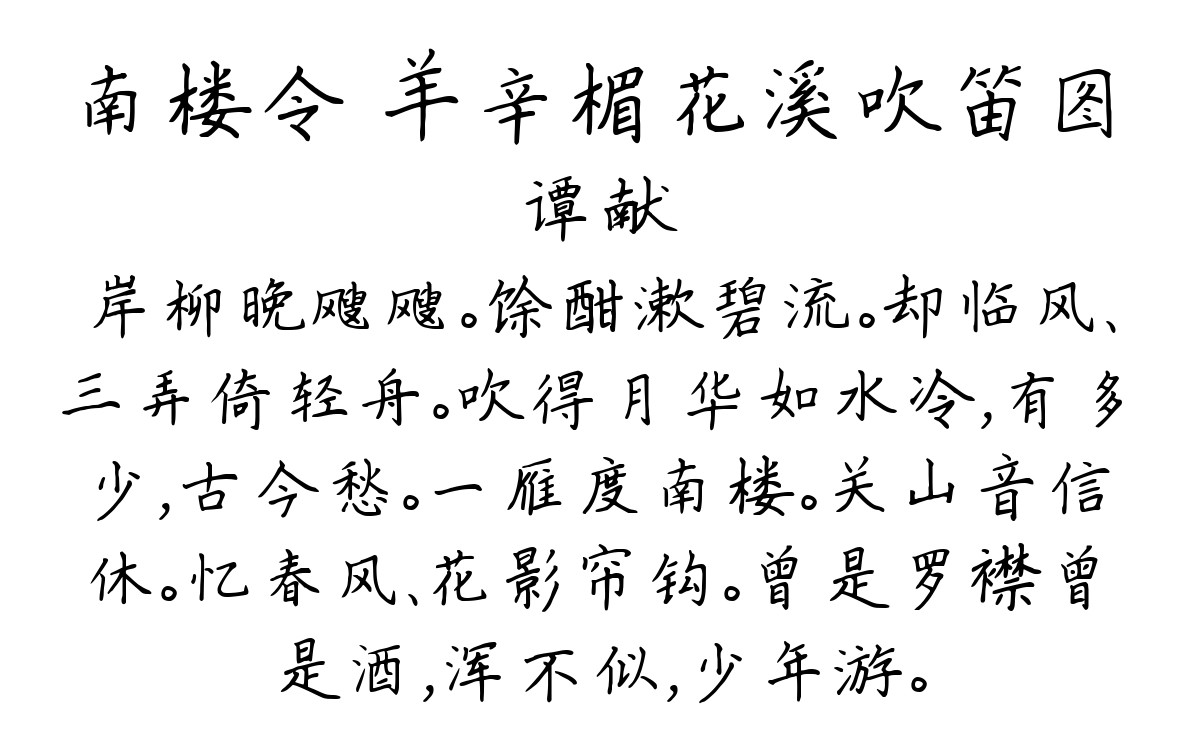 南楼令 羊辛楣花溪吹笛图
谭献
岸柳晚飕飕。馀酣漱碧流。却临风、
三弄倚轻舟。吹得月华如水冷,有多
少,古今愁。一雁度南楼。关山音信
休。忆春风、花影帘钩。曾是罗襟曾
是酒,浑不似,少年游。